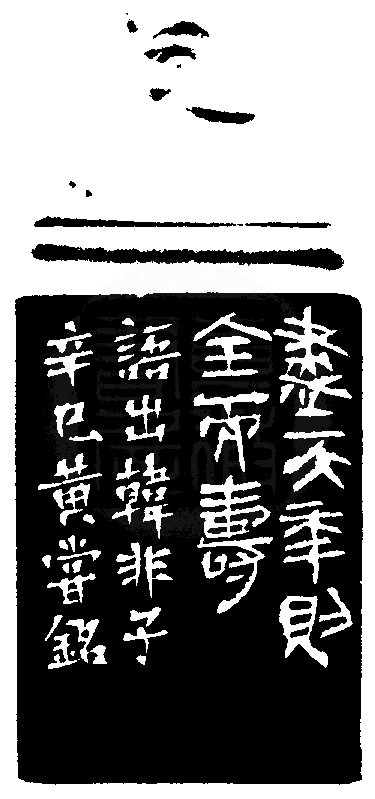 盡天年則
全而壽
語出韓非子
辛巳黃嘗銘